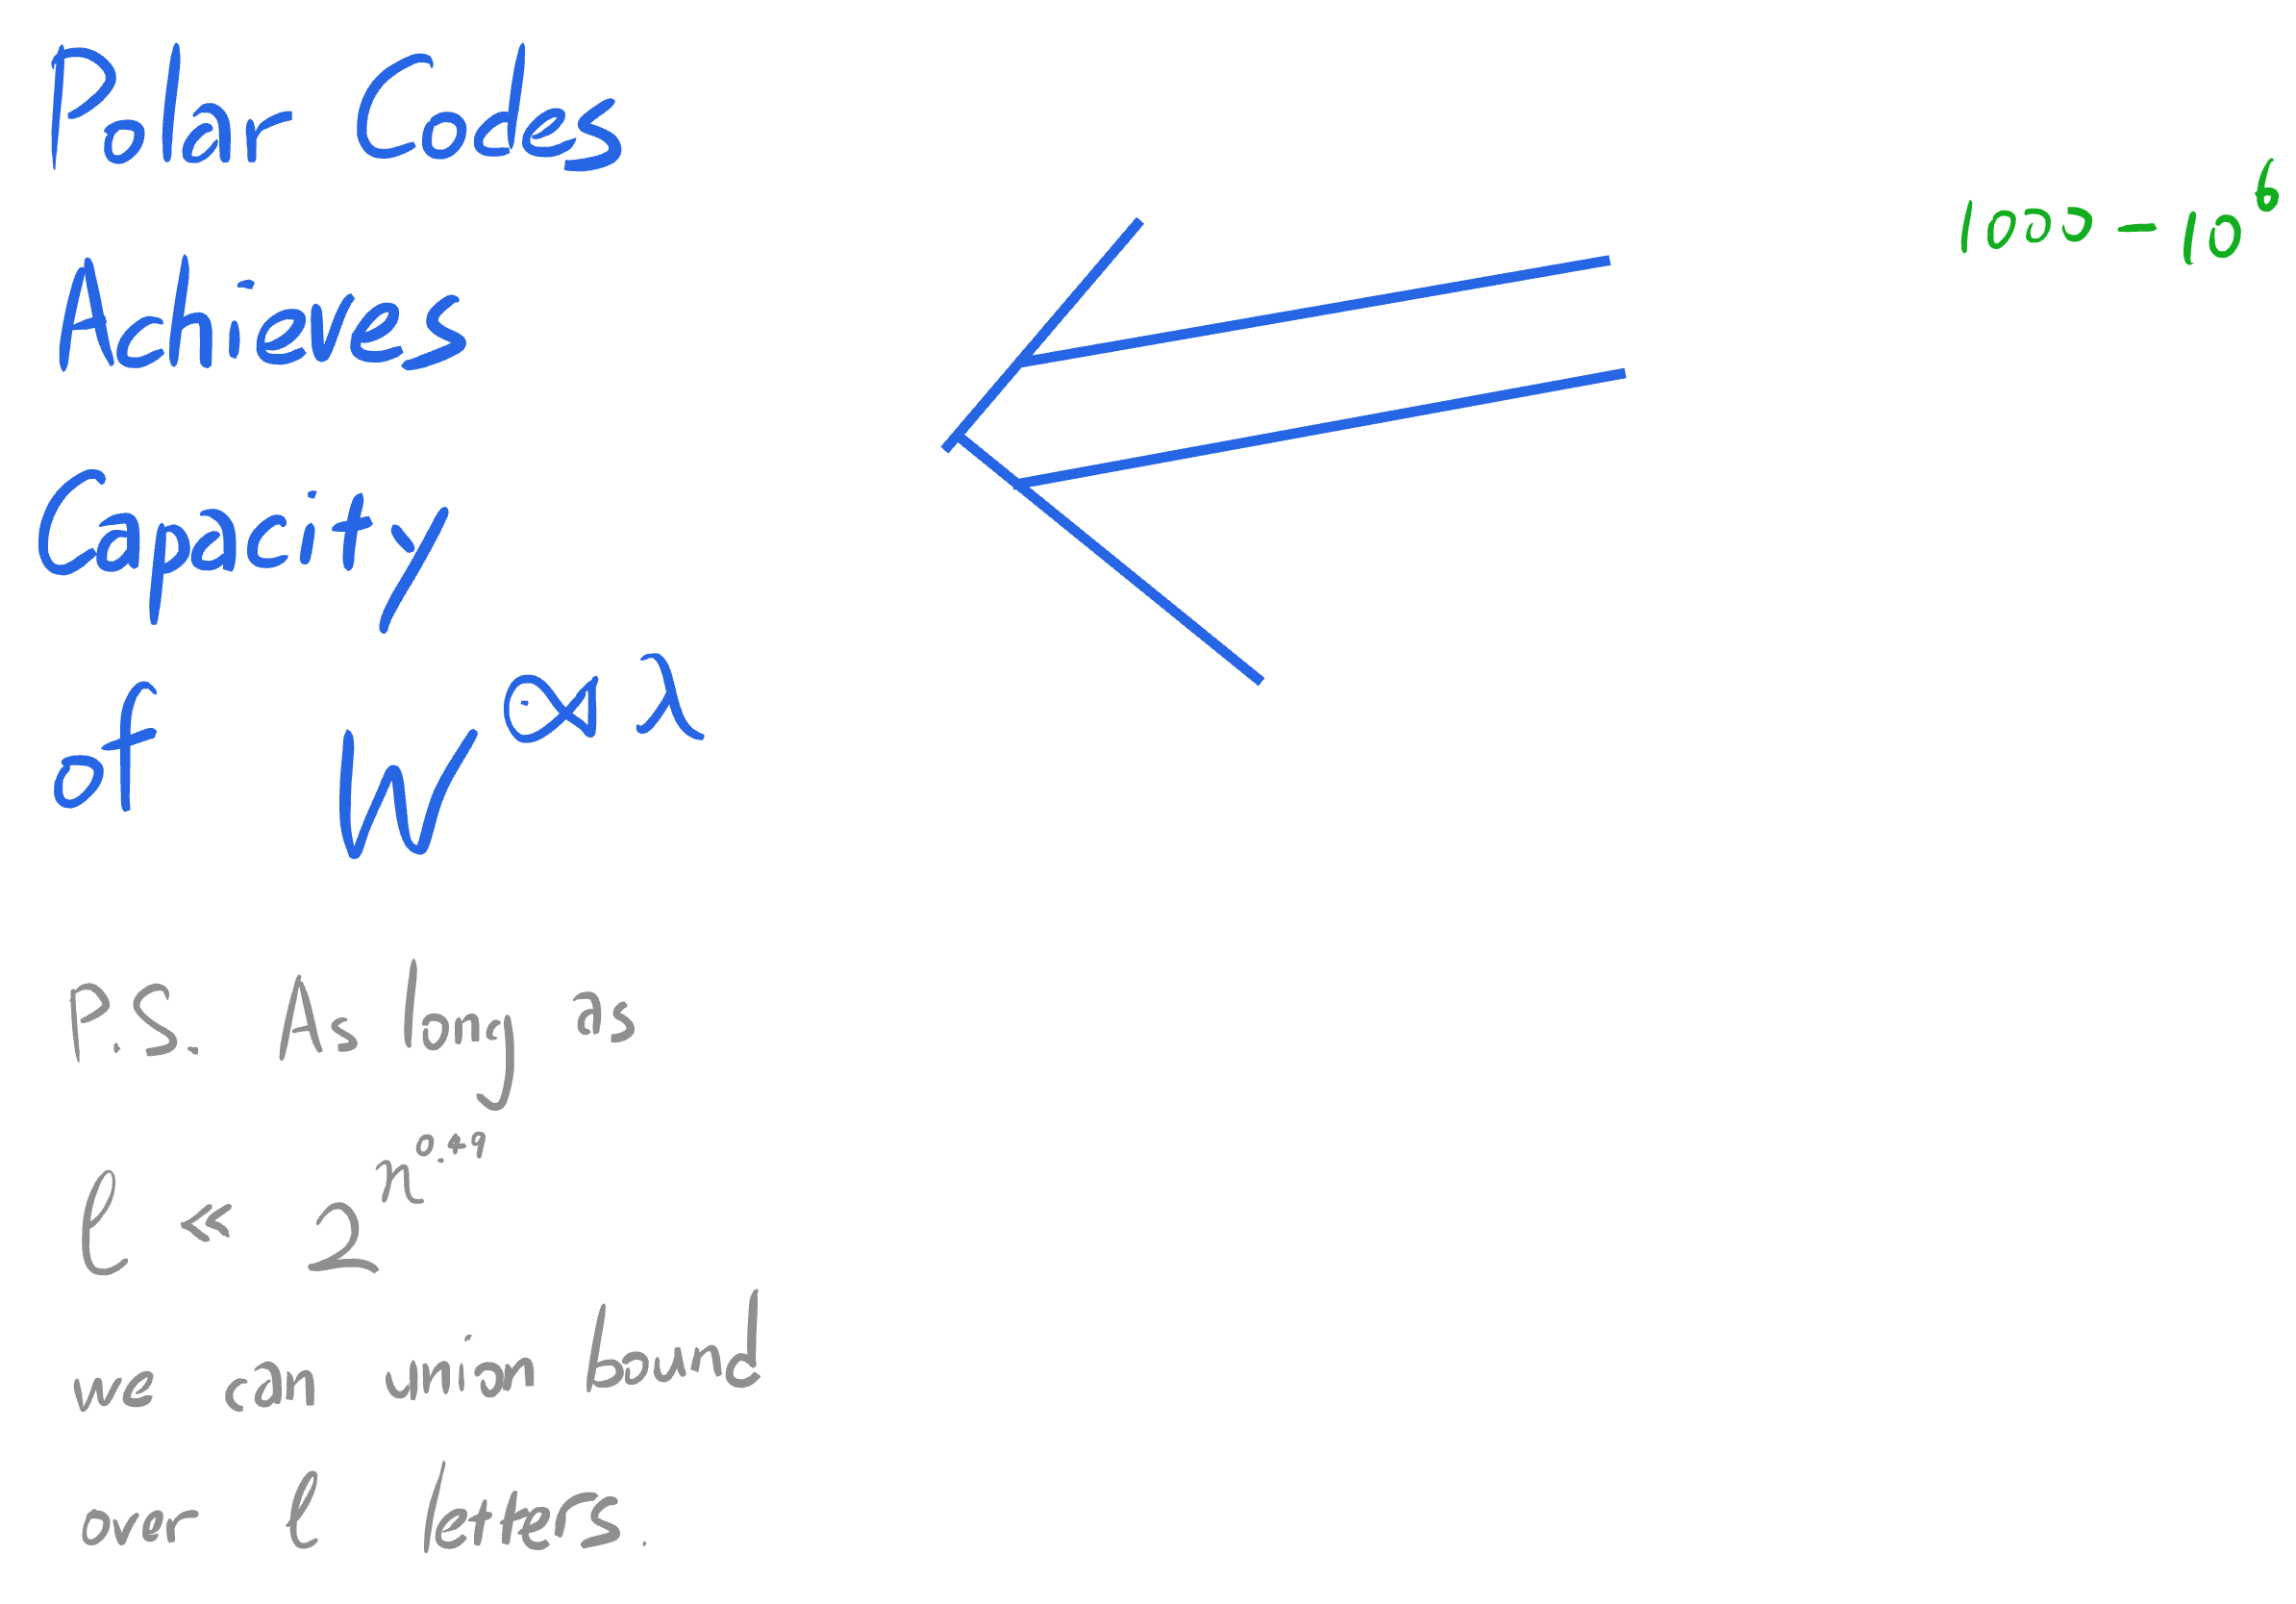 Polar Codes
1000 - 10^6
Achieves
Capacity
of W^{⊗λ}
P.S. As long as
ℓ << 2^{n^{0.49}}
we can union bound
over ℓ letters.